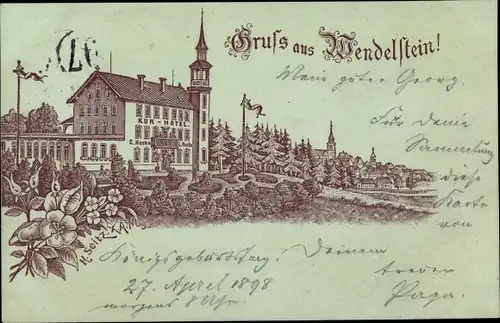 Gruss aus Wendelstein!
17
Mein guter Georg.
KUR-HOTEL.
Für Deine
Sammlung
diese
Karte
von
Deinem
treuen
Papa.
H. Seitz
Königsgeburtstag.
27. April 1898
morgens 8 Uhr.